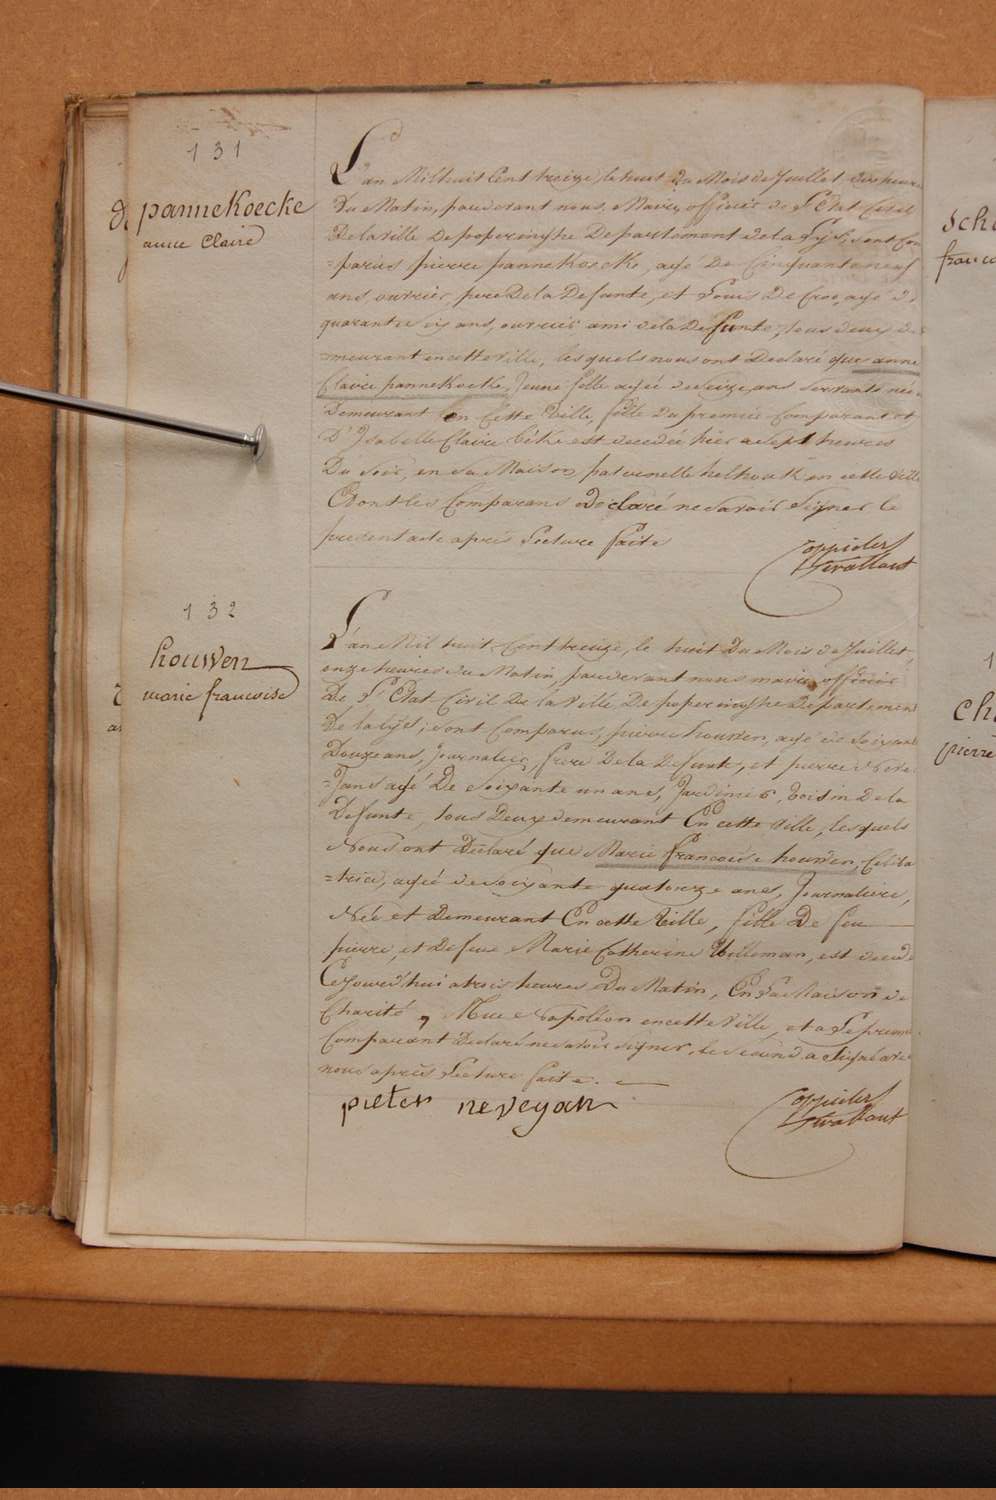 131
pannekoecke
anne Claire
L'an Mil huit Cent treize, le huit du Mois de Juillet, dix heures
Du Matin, pardevant nous, Maire, officier de L'Etat Civil
De la ville De poperinghe Departement de la Lys, sont Com
=parus pierre pannekoecke, agé De Cinquante neuf
ans, ouvrier, pere De la Defunte, et Louis De Croo, agé de
quarante six ans, ouvrier ami de la Defunte, tous deux de
meurant en cette ville, lesquels nous ont Declaré que anne
Claire pannekoecke, Jeune fille agée de seize ans servante née
Demeurant En Cette Ville, fille du premier Comparant et
D'Isabelle Claire est decedée hier a sept heures
Du soir, en sa Maison paternelle en cette ville
Et ont les Comparans Declaré ne savoir Signer le
present acte après Lecture faite
132
houwen
marie francoise
L'an Mil huit Cent treize, le huit Du Mois de Juillet
onze heures du Matin, pardevant nous maire officier
De L'Etat Civil De la Ville De poperinghe Departement
De la Lys, sont Comparus, pierre houwen, agé de soixante
Douze ans, Journalier, frere De la Defunte, et pierre
agé De soixante un ans, Jardinier, Voisin De la
Defunte, tous Deux demeurant En cette Ville, lesquels
Nous ont Declaré que Marie francoise houwen, Celiba
=trice, agée de soixante quatorze ans, Journaliere,
Née et demeurant En cette Ville, fille De feu
pierre, et De feue Marie Catherine Willeman, est decedé
Cejourd'hui a trois heures Du Matin, En sa Maison de
Charité, Rue Napoléon en cette Ville, et a Le premier
Comparant Declaré ne savoir signer, le second a signé avec
nous après Lecture faite.
pieter neveyan
scha
franco
ch
pierre